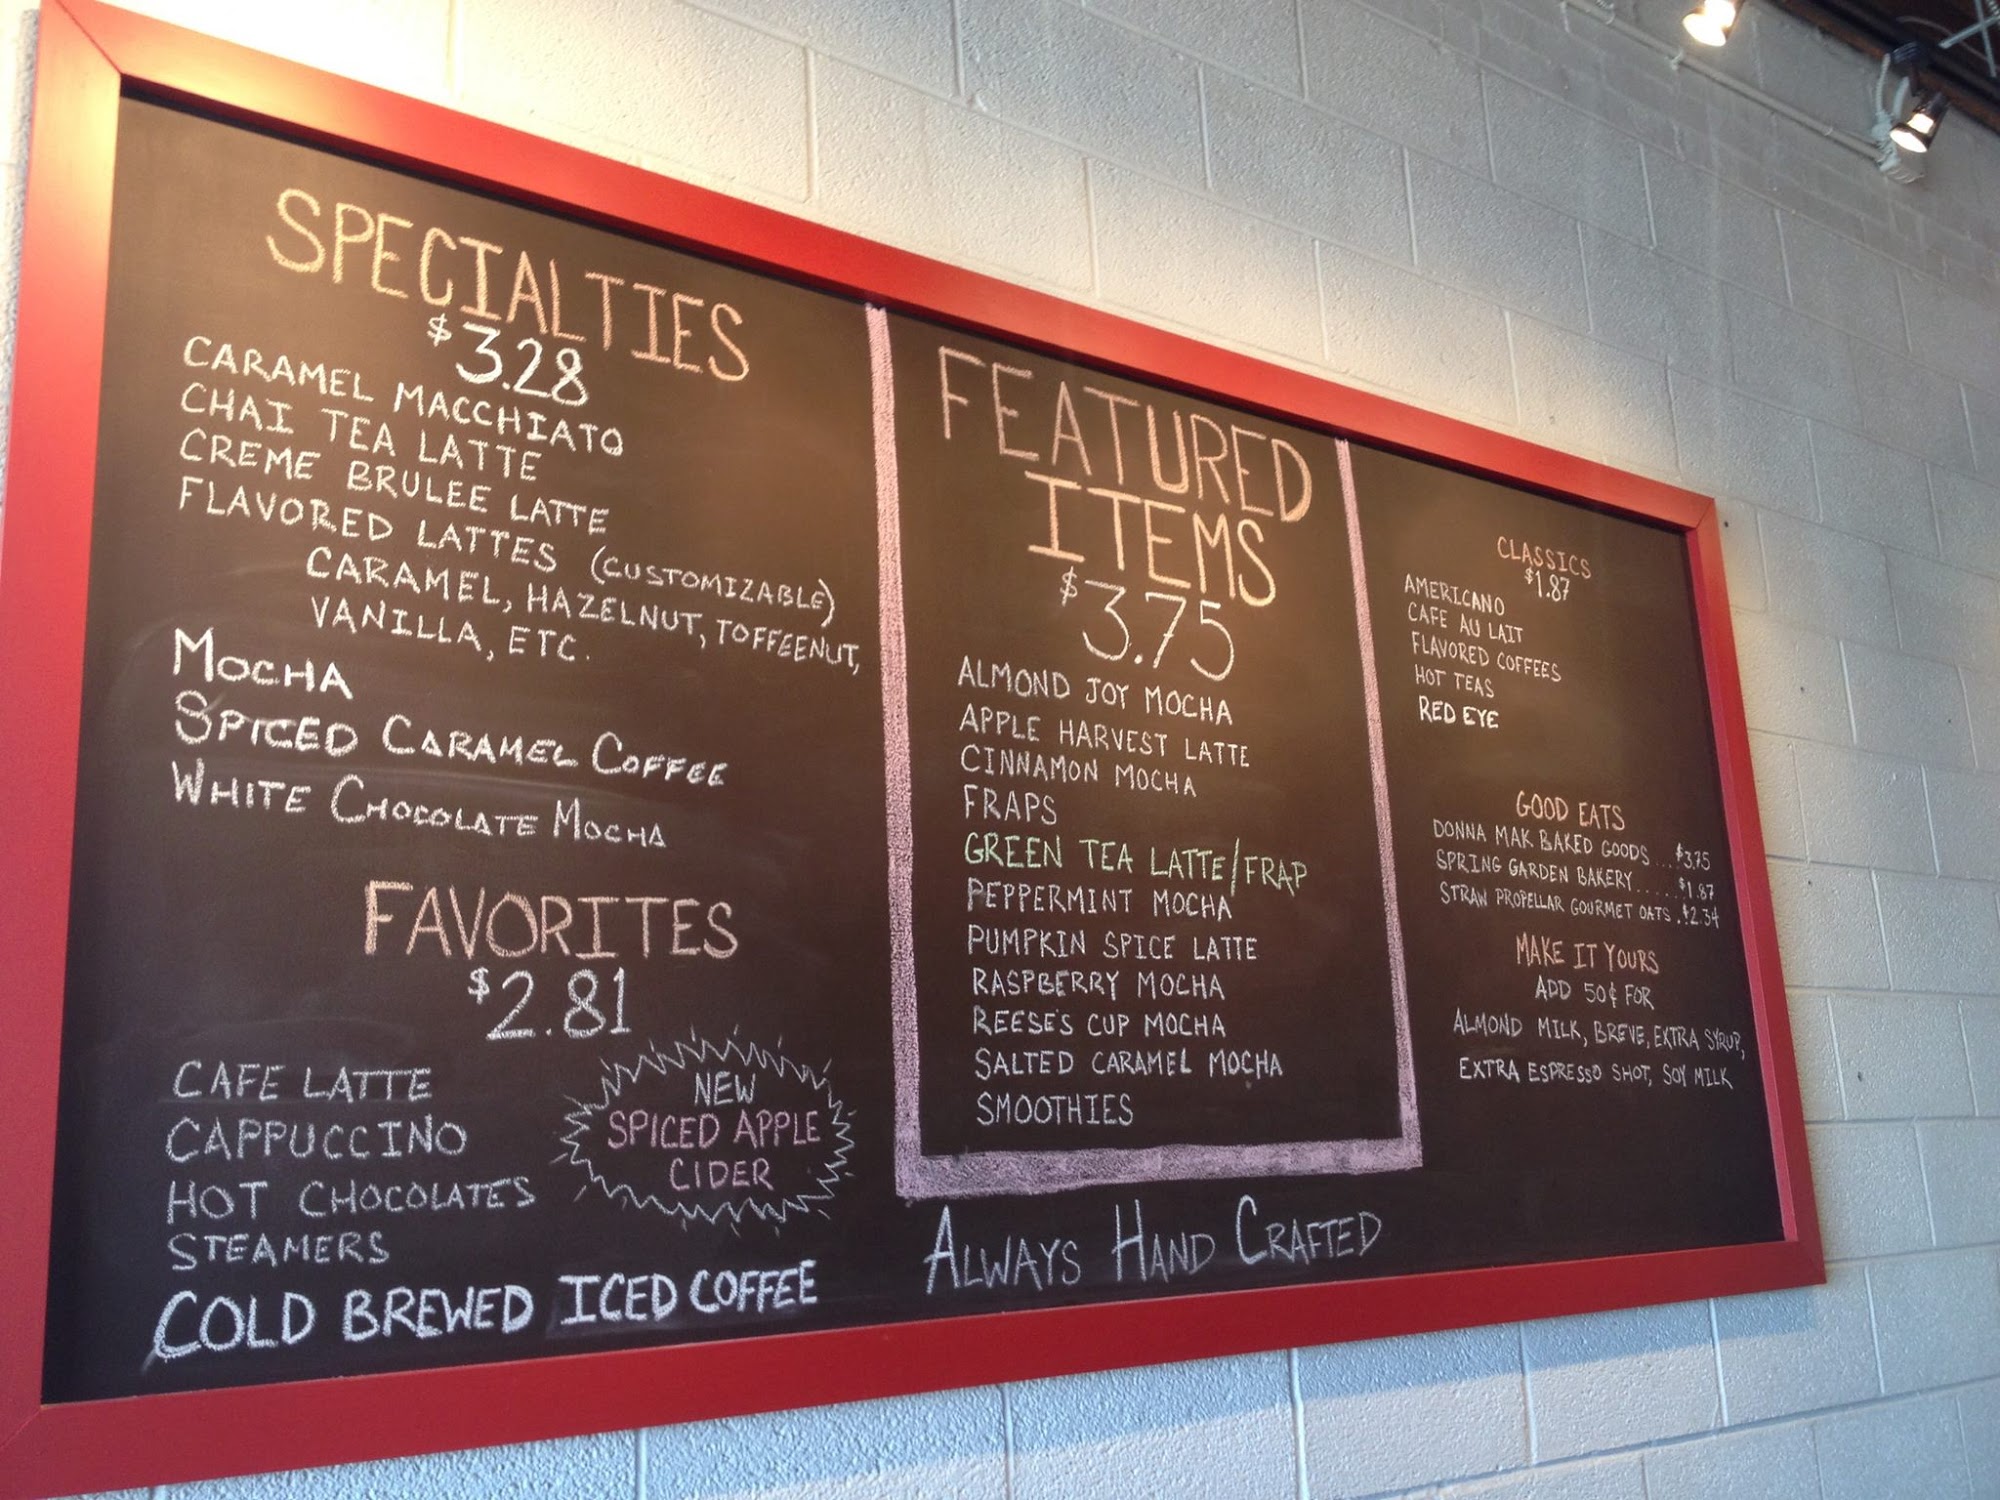 SPECIALTIES
$3.28
CARAMEL MACCHIATO
CHAI TEA LATTE
CREME BRULEE LATTE
FLAVORED LATTES (CUSTOMIZABLE)
CARAMEL, HAZELNUT, TOFFEENUT,
VANILLA, ETC.
MOCHA
SPICED CARAMEL COFFEE
WHITE CHOCOLATE MOCHA
FAVORITES
$2.81
CAFE LATTE
CAPPUCCINO
HOT CHOCOLATES
STEAMERS
COLD BREWED ICED COFFEE
NEW
SPICED APPLE
CIDER
FEATURED
ITEMS
$3.75
ALMOND JOY MOCHA
APPLE HARVEST LATTE
CINNAMON MOCHA
FRAPS
GREEN TEA LATTE/FRAP
PEPPERMINT MOCHA
PUMPKIN SPICE LATTE
RASPBERRY MOCHA
REESE'S CUP MOCHA
SALTED CARAMEL MOCHA
SMOOTHIES
ALWAYS HAND CRAFTED
CLASSICS
$1.87
AMERICANO
CAFE AU LAIT
FLAVORED COFFEES
HOT TEAS
RED EYE
GOOD EATS
DONNA MAK BAKED GOODS...$3.75
SPRING GARDEN BAKERY.....$1.87
STRAW PROPELLAR GOURMET OATS.$2.34
MAKE IT YOURS
ADD 50¢ FOR
ALMOND MILK, BREVE, EXTRA SYRUP,
EXTRA ESPRESSO SHOT, SOY MILK